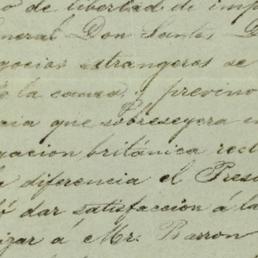 o de libertad de imp
neral Don Santos D
gocios estrangeros se
la causa, y previno
cia que sobreseyera en
gacion británica recl
a diferencia el Presi
ó dar satisfaccion á la
izar á Mr. Barron